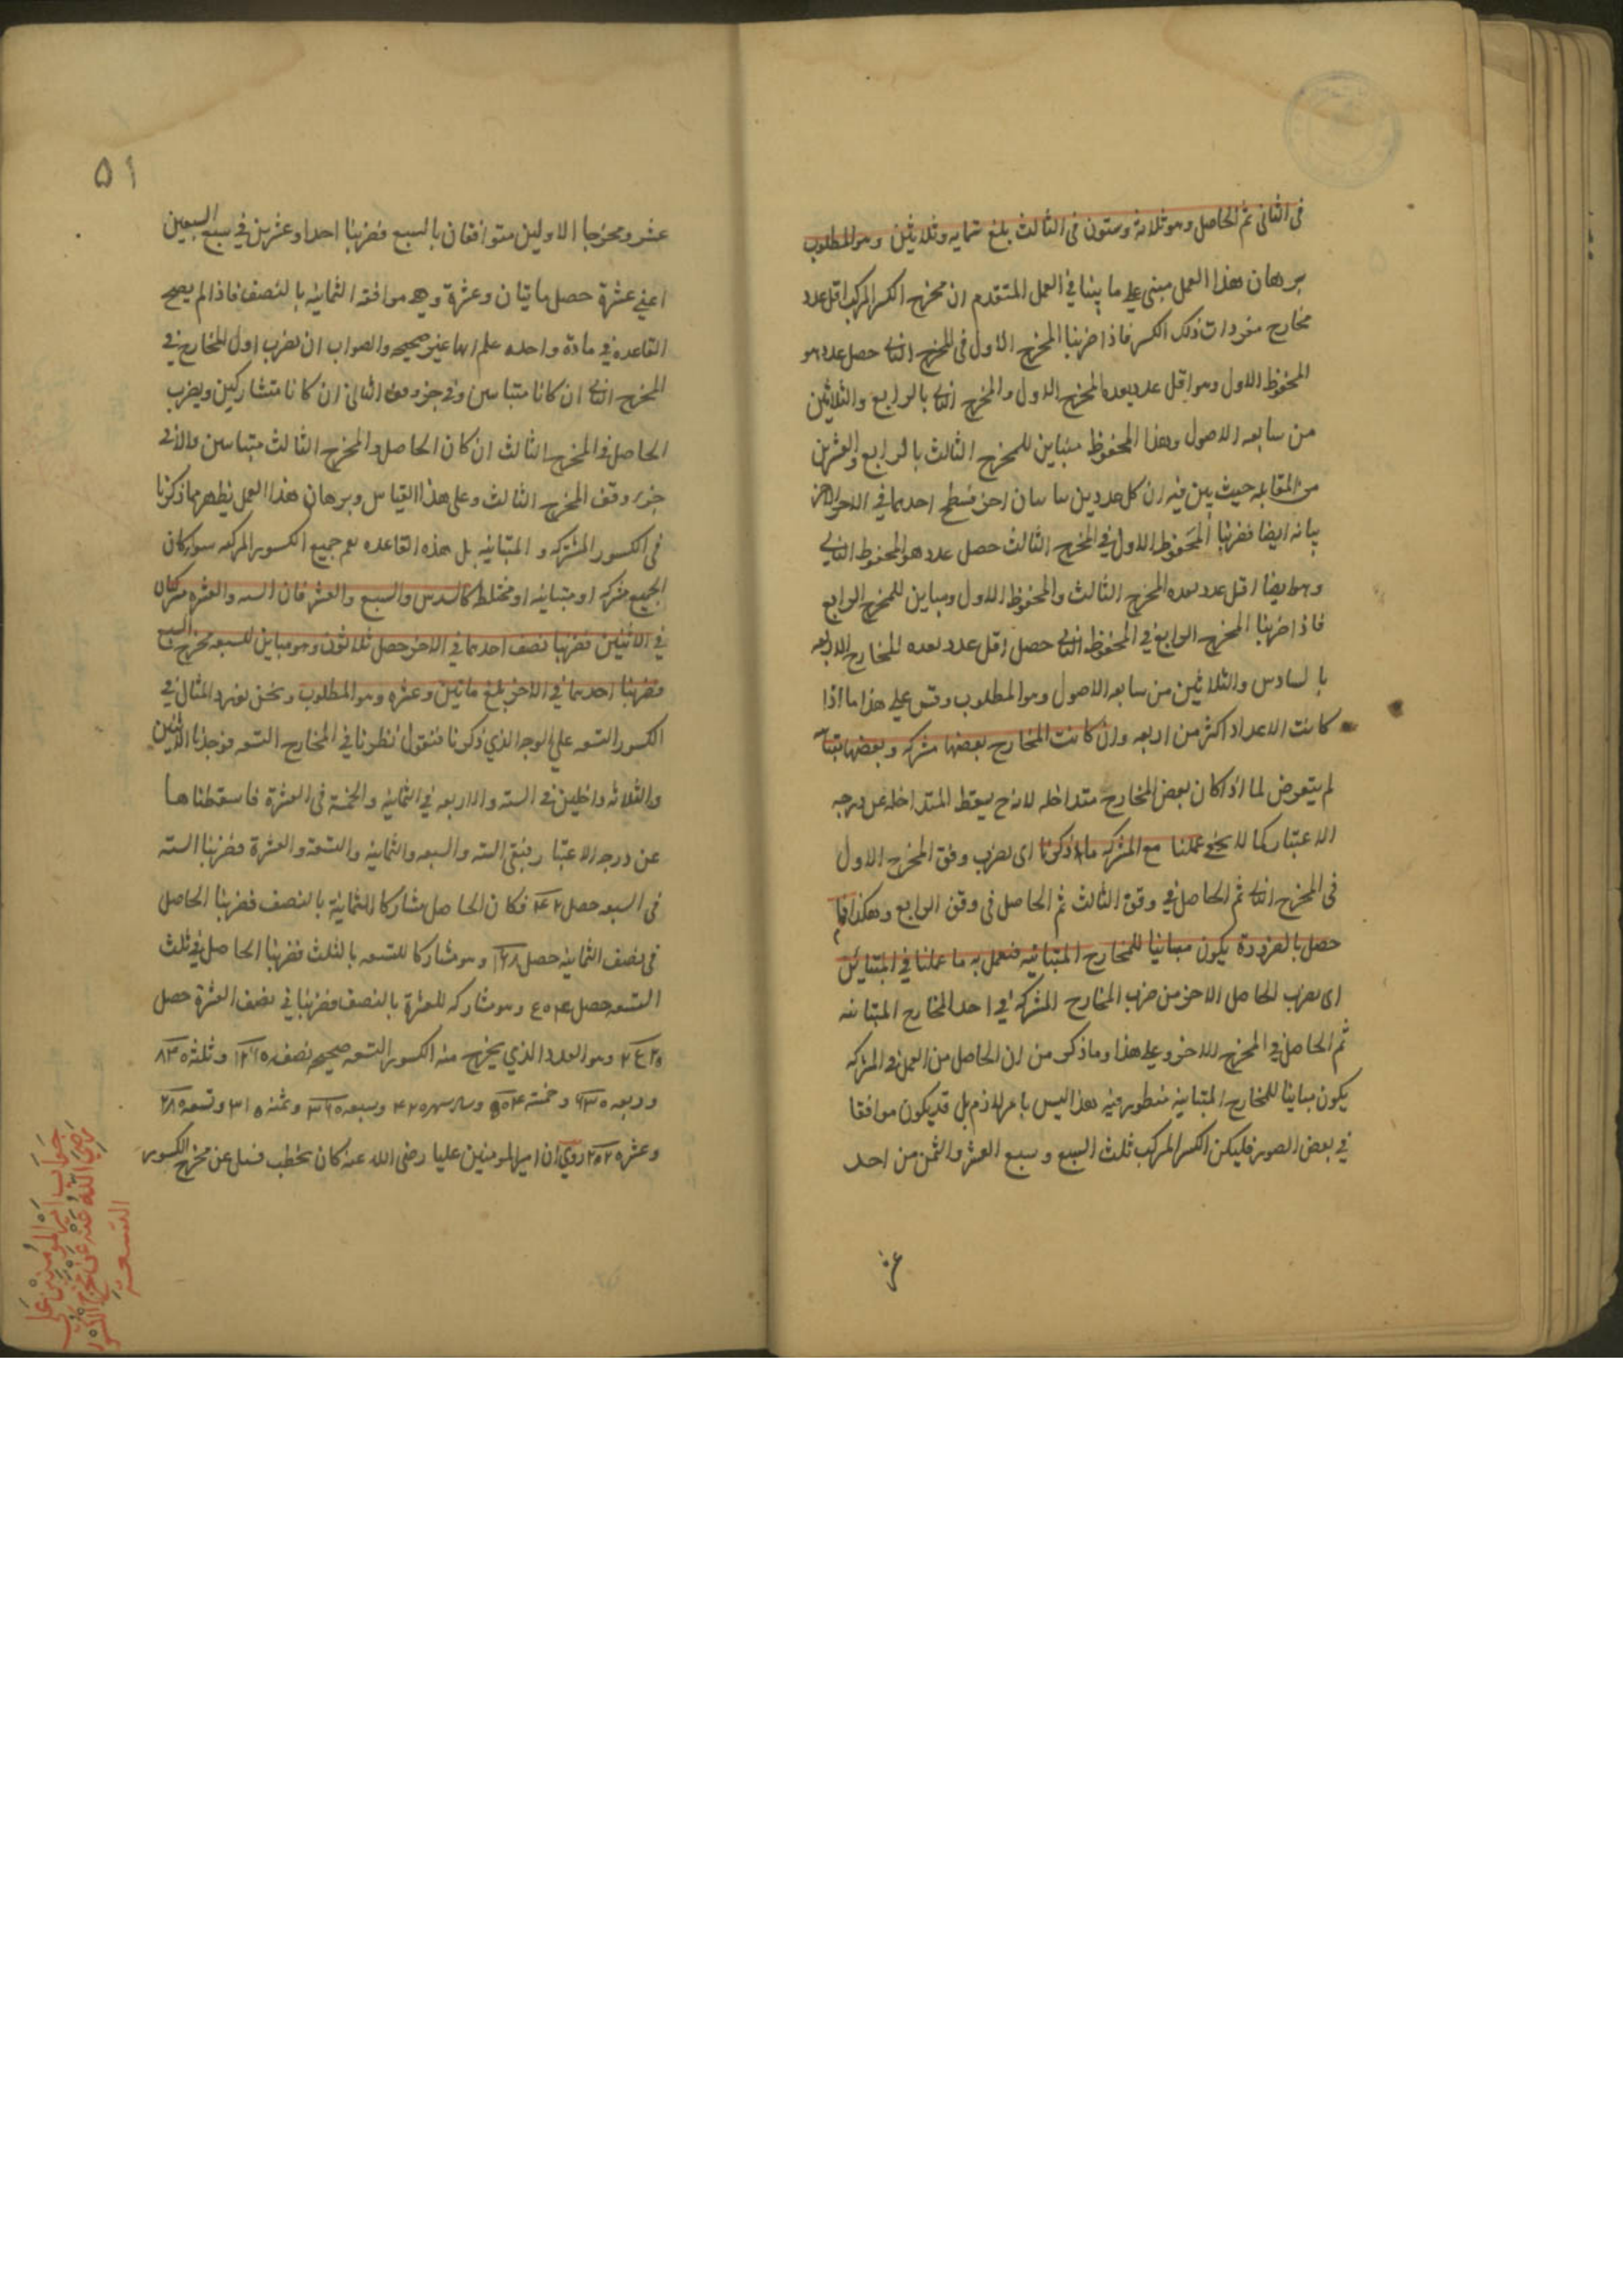 فى الثانى ثم الحاصل وهو ثلاثة وستون فى الثالث بلغ ستمايه وثلاثين وهو المطلوب
برهان هذا العمل مبنى على ما بينا في العمل المتقدم ان مخرج الكسر المركب اقل عدد
مخارج مفردات ذلك الكسر فاذا ضربنا المخرج الاول فى المخرج الثانى حصل عدد هو
المحفوظ الاول وهو اقل عدد يعده المخرج الاول والمخرج الثانى بالرابع والثلاثين
من سابعه الاصول وهذا المحفوظ مباين للمخرج الثالث بالرابع والعشرين
من المقابله حيث بين فيه ان كل عددين اخر فسطح احدهما في الاخر
بيانه ايضا فضربنا المحفوظ الاول في المخرج الثالث حصل عدد هو المحفوظ الثانى
وهو ايضا اقل عدد يعده المخرج الثالث والمحفوظ الاول ومباين للمخرج الرابع
فاذا ضربنا المخرج الرابع في المحفوظ الثانى حصل اقل عدد يعده المخارج الاربعه
بالسادس والثلاثين من سابعه الاصول وهو المطلوب وقس على هذا ما اذا
كانت الاعداد اكثر من اربعه وان كانت المخارج بعضها مشركه وبعضها متباينه
لم يتعرض لما اذا كان بعض المخارج متداخله لانه ح يسقط المتداخله عن درجه
الاعتبار كما لا يخفى عملنا مع المشركه ما ذكرنا اى يضرب وفق المخرج الاول
فى المخرج الثانى ثم الحاصل في وفق الثالث ثم الحاصل فى وفق الرابع وهكذا فما
حصل بالضرورة يكون مباينا للمخارج المتباينه فنعمل به ما عملنا في المتباين
اى يضرب الحاصل الاخر من ضرب المخارج المشركه في احد المخارج المتباينه
ثم الحاصل في المخرج الاخر وعلى هذا وما ذكر من ان الحاصل من العمل في المشركه
يكون مباينا للمخارج المتباينه منظور فيه هذا ليس بامر لازم بل قد يكون موافقا
في بعض الصور فليكن الكسر المركب ثلث السبع وسبع العشر والثمن من احد
عشر
٥١
عشر ومخرجا الاولين متوافقان بالسبع فضربنا احدا وعشرين في سبع السبعين
اعني عشرة حصل مايتان وعشرة وهو موافقه الثمانيه بالنصف فاذا لم يصح
القاعده في مادة واحده علم انها غير صحيحه والصواب ان يضرب اول المخارج في
المخرج الثانى ان كانا متباينين وفي جزء وفق الثانى ان كانا متشاركين ويضرب
الحاصل فى المخرج الثالث ان كان الحاصل والمخرج الثالث متباينين والا فى
جزء وفق المخرج الثالث وعلى هذا القياس وبرهان هذا العمل يظهر مما ذكرنا
فى الكسور المشتركه والمتباينه بل هذه القاعده يعم جميع الكسور المركبه سوا كان
الجميع مشركه او متباينه او مختلط كالسدس والسبع والعشر فان السته والعشره مشركان
في الاثنين فضربنا نصف احدهما في الاخر حصل ثلاثون وهو مباين للسبعه مخرج السبع
فضربنا احدهما في الاخر بلغ مائتين وعشره وهو المطلوب ونحن نورد المثال في
الكسور التسعه على الوجه الذي ذكرنا فنقول نظرنا في المخارج التسعه فوجدنا الاثنين
والثلاثه داخلين في السته والاربعه في الثمانيه والخمسة فى العشرة فاسقطناها
عن درجه الاعتبار فبقى السته والسبعه والثمانيه والتسعه والعشرة فضربنا السته
فى السبعه حصل ٤٢ فكان الحاصل مشاركا للثمانية بالنصف فضربنا الحاصل
فى نصف الثمانيه حصل ١٦٨ وهو مشاركا للتسعه بالثلث فضربنا الحاصل في ثلث
التسعه حصل ٥٠٤ وهو مشاركه للعشرة بالنصف فضربنا في نصف العشرة حصل
٢٥٢٠ وهو العدد الذي يخرج منه الكسور التسعه صحيحه نصفه ١٢٦٠ وثلثه ٨٤٠
وربعه ٦٣٠ وخمسه ٥٠٤ وسدسه ٤٢٠ وسبعه ٣٦٠ وثمنه ٣١٥ وتسعه ٢٨٠
وعشره ٢٥٢ روي ان امير المومنين عليا رضى الله عنه كان يخطب فسئل عن مخرج الكسور
جواب امير المؤمنين على
رضي الله عنه عن مخرج الكسور
التسعة